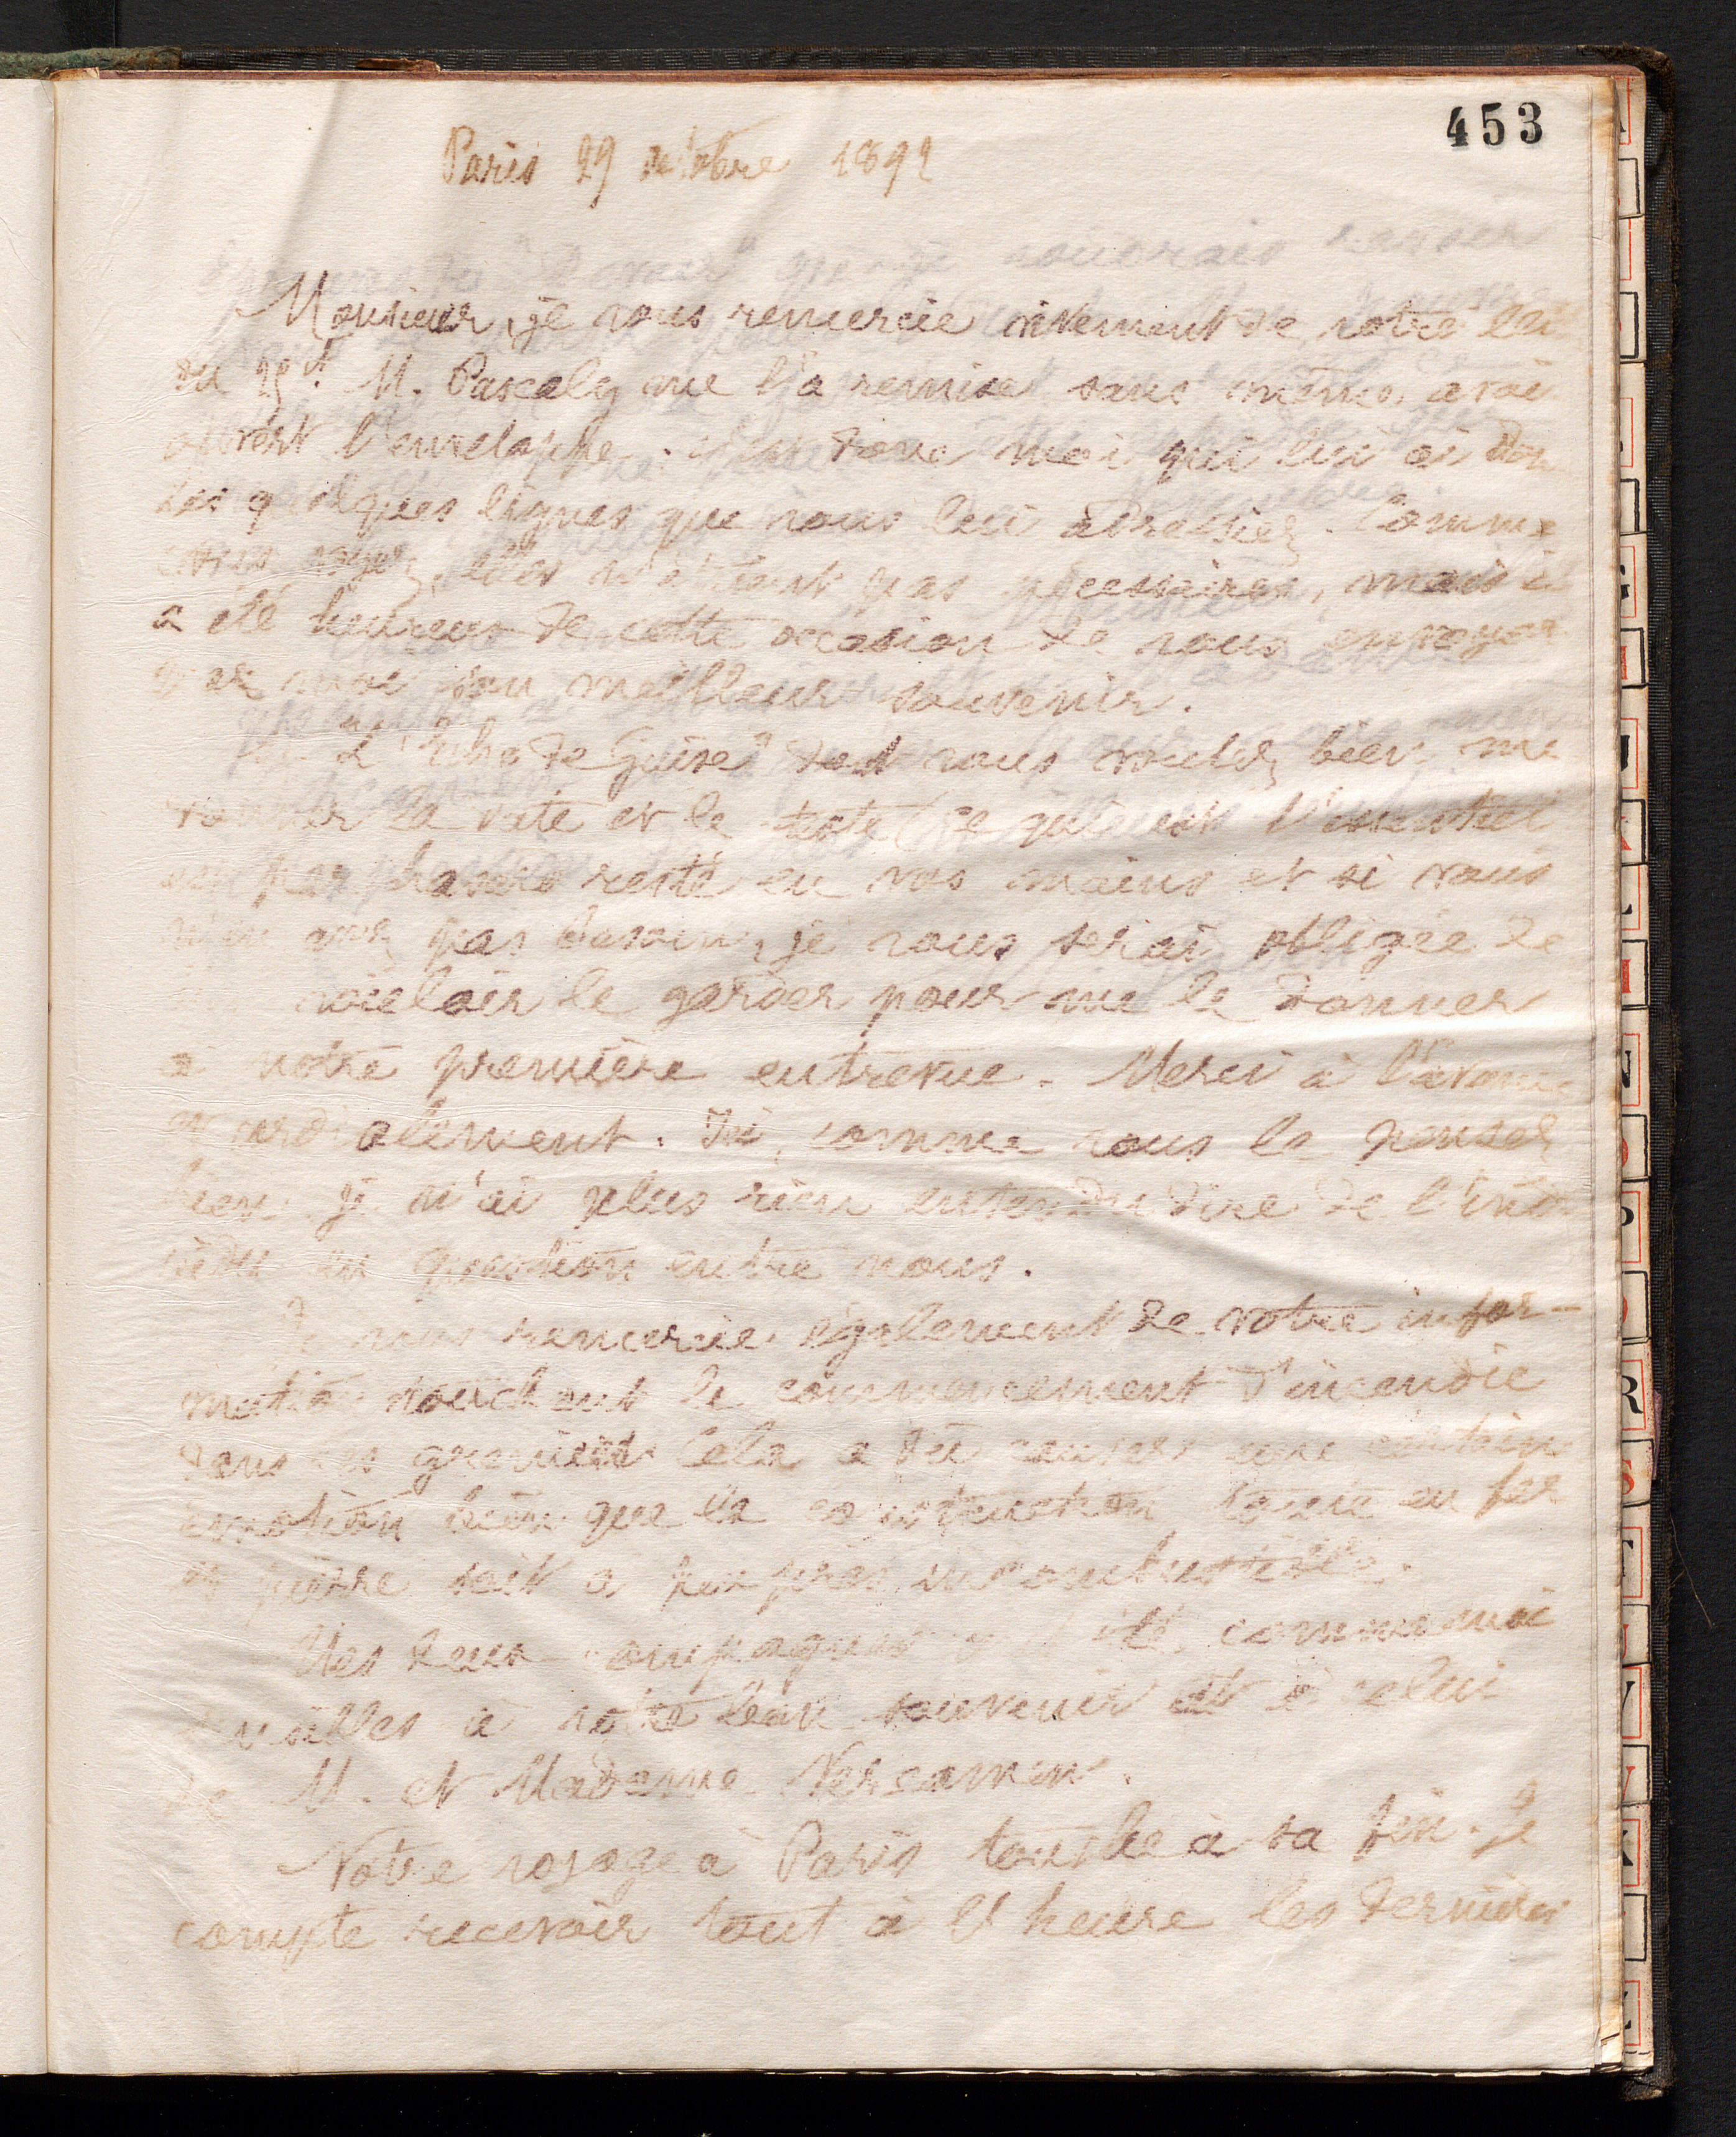 453
Paris 29 octobre 1892
Monsieur, je vous remercie vivement de votre
du 25 ct. M. Pascaly me l'a remise sans même avoi
ouvert l'enveloppe. donc moi qui lui ai
les quelques lignes que vous lui adressiez. Comme
voyez, elles n'étaient pas nécessaires, mais il
a été heureux de cette occasion de vous envoyer
par moi son meilleur souvenir.
L'Echo de Guise" dont vous voulez bien me
donner la date et le texte (ce qui est l'essentiel
par hasard resté en vos mains et si vous
n'en avez pas besoin, je vous serai obligée de
vouloir le garder pour me le donner
à notre première entrevue. Merci à l'avance
et cordialement. Ici, comme vous le pensez
bien, je n'ai plus rien entendu dire de l'indi
vidu en question entre nous.
Je vous remercie également de votre infor-
mation touchant le commencement d'incendie
dans les greniers. Cela a dû causer une certaine
émotion bien que la construction toute en fer
et pierre soit à peu près incombustible.
Mes deux compagnes ont été comme moi
sensibles à votre bon souvenir et à celui
de M. et Madame
Notre voyage à Paris touche à sa fin. Je
compte recevoir tout à l'heure les dernières